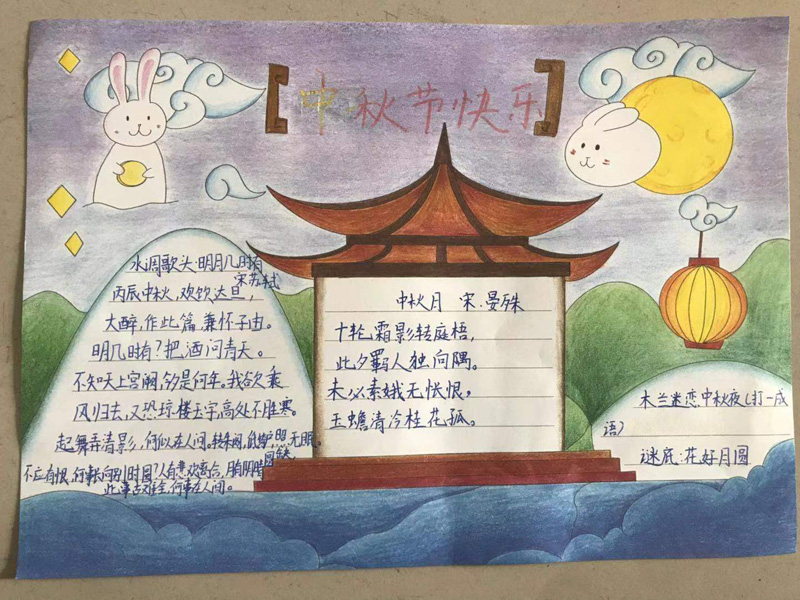 中秋节快乐
水调歌头·明月几时有
宋苏轼
丙辰中秋,欢饮达旦,
大醉,作此篇,兼怀子由。
明几时有?把酒问青天。
不知天上宫阙,今夕是何年。我欲乘
风归去,又恐琼楼玉宇,高处不胜寒。
起舞弄清影,何似在人间。转朱阁,低绮户,照无眠。
不应有恨,何事长向别时圆?人有悲欢离合,月有阴晴
圆缺
此事古难全,何事在人间。
中秋月 宋·晏殊
十轮霜影转庭梧,
此夕羁人独向隅。
未必素娥无怅恨,
玉蟾清冷桂花孤。
木兰迷恋中秋夜(打一成
语)
谜底:花好月圆